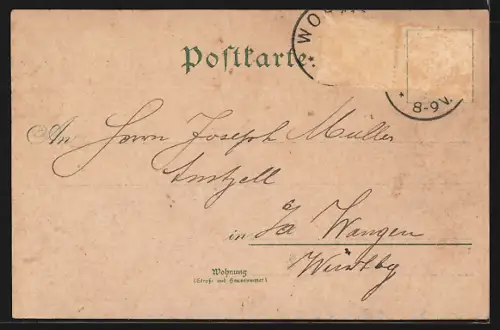 WO
Postkarte
8-9V.
An Herrn Joseph Müller
Amtzell
in Oa Wangen
Württbg
Wohnung
(Straße und Hausnummer)